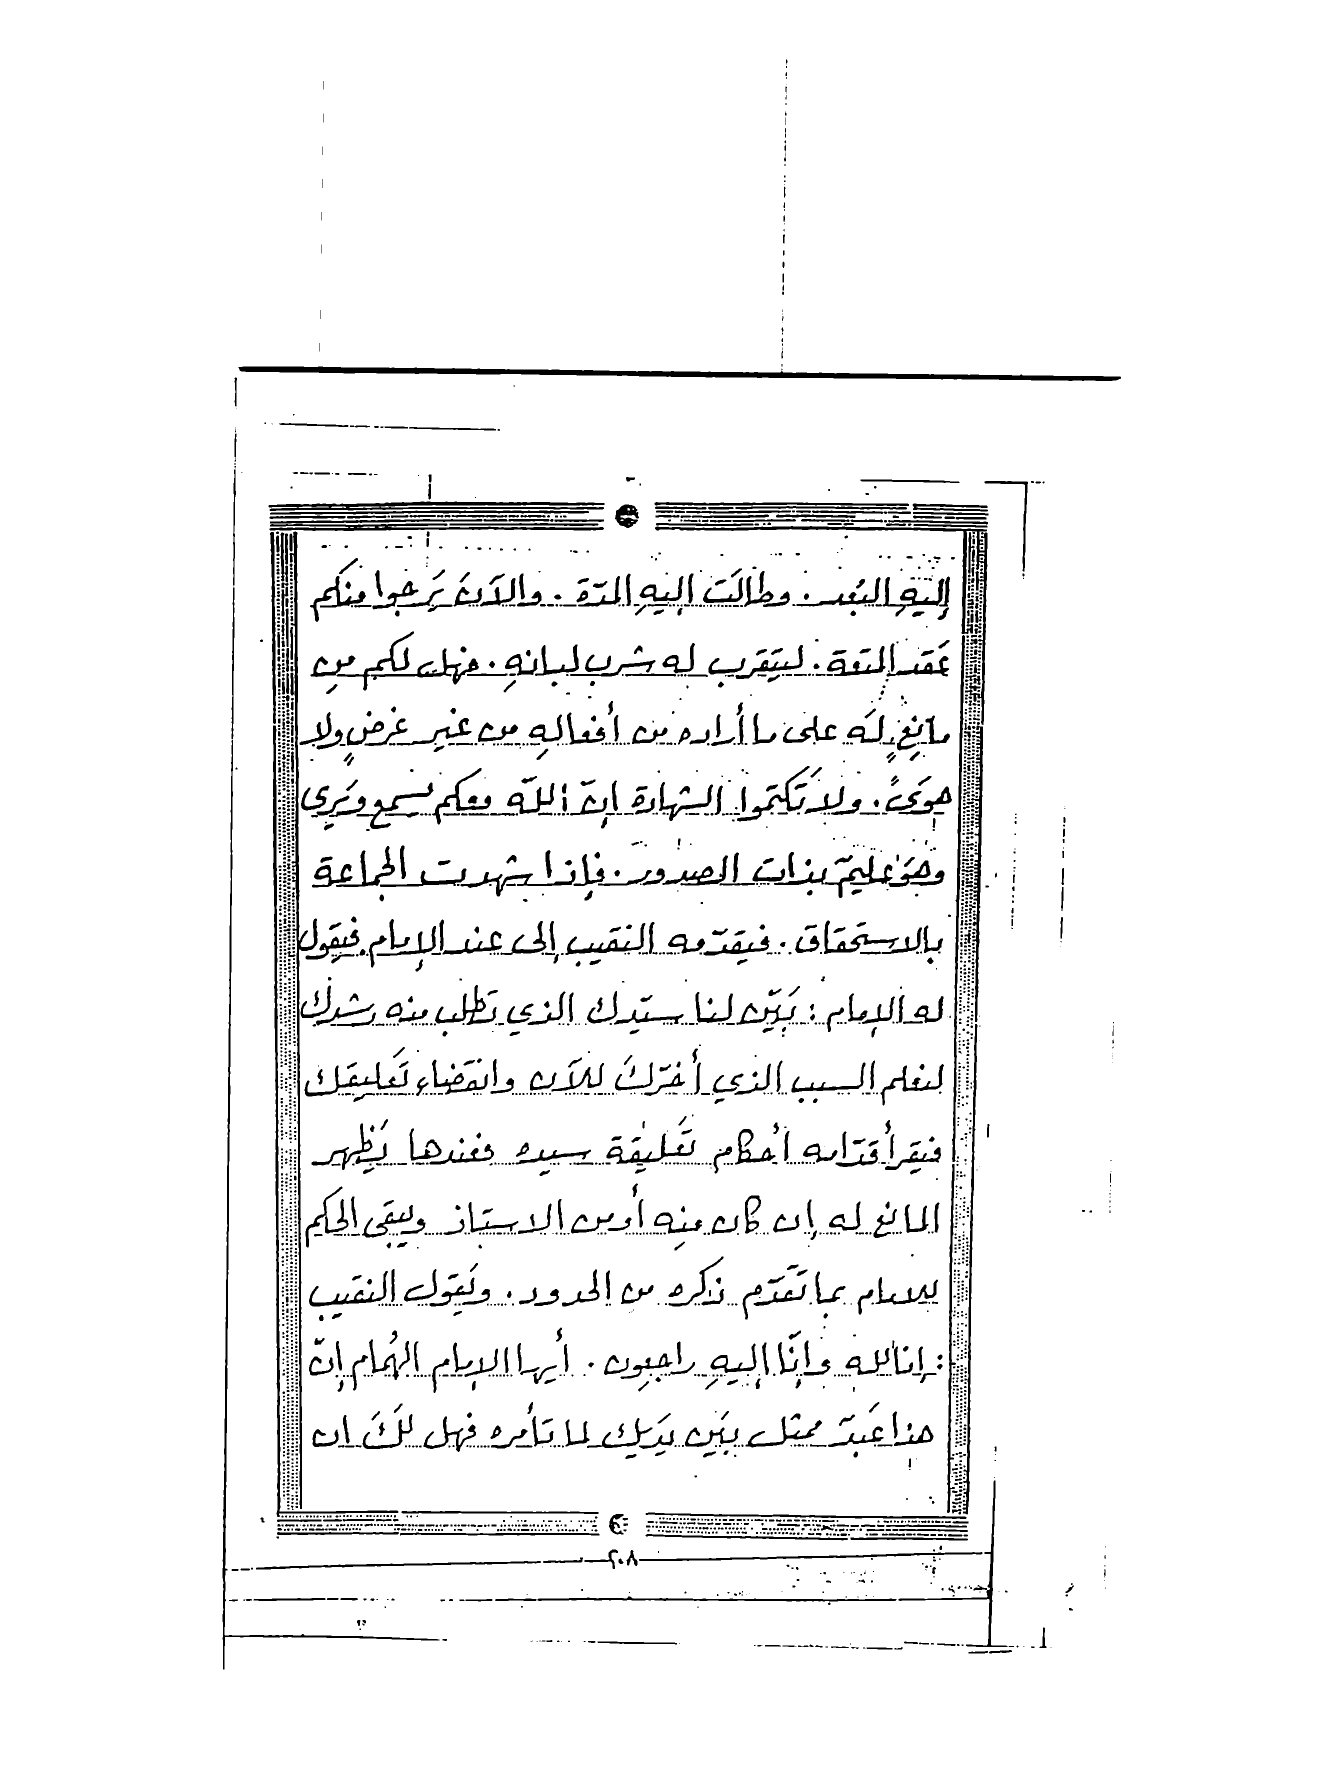 إليهِ البُعد . وطالَت إليهِ المدّة . والآنَ يَرجوا منكم
عَقد المتعة . ليتقرب له شرب لبانهِ . فهل لكم مِن
مانِعٍ لَه على ما أراده من أفعالهِ من غير غرضٍ ولا
هوىً . ولا تَكتموا الشهادة إنّ اللّه معكم يسمع ويَرى
وهوَ عليمٌ بذات الصدور . فإذا شهدت الجماعة
بالاستحقاق . فيقدّمه النقيب إلى عند الإمام . فيقول
له الإمام : بَيّن لنا سيّدك الذي تَطلب منه رشدك
لنعلم السبب الذي أخّرك للآن وانقضاء تَعليقك
فيقرأ قدّامه أحكام تَعليقة سيده فعندها يَظهر
المانع له إن كان منه أو من الاستاذ ويبقى الحكم
للامام بما تَقدّم ذكره من الحدود . ويَقول النقيب
: إنا لله وإنّا إليهِ راجعون . أيها الإمام الهُمام إنّ
هذا عَبدٌ ممثل بيَن يدَيك لما تأمره فهل لكَ ان
٢٠٨